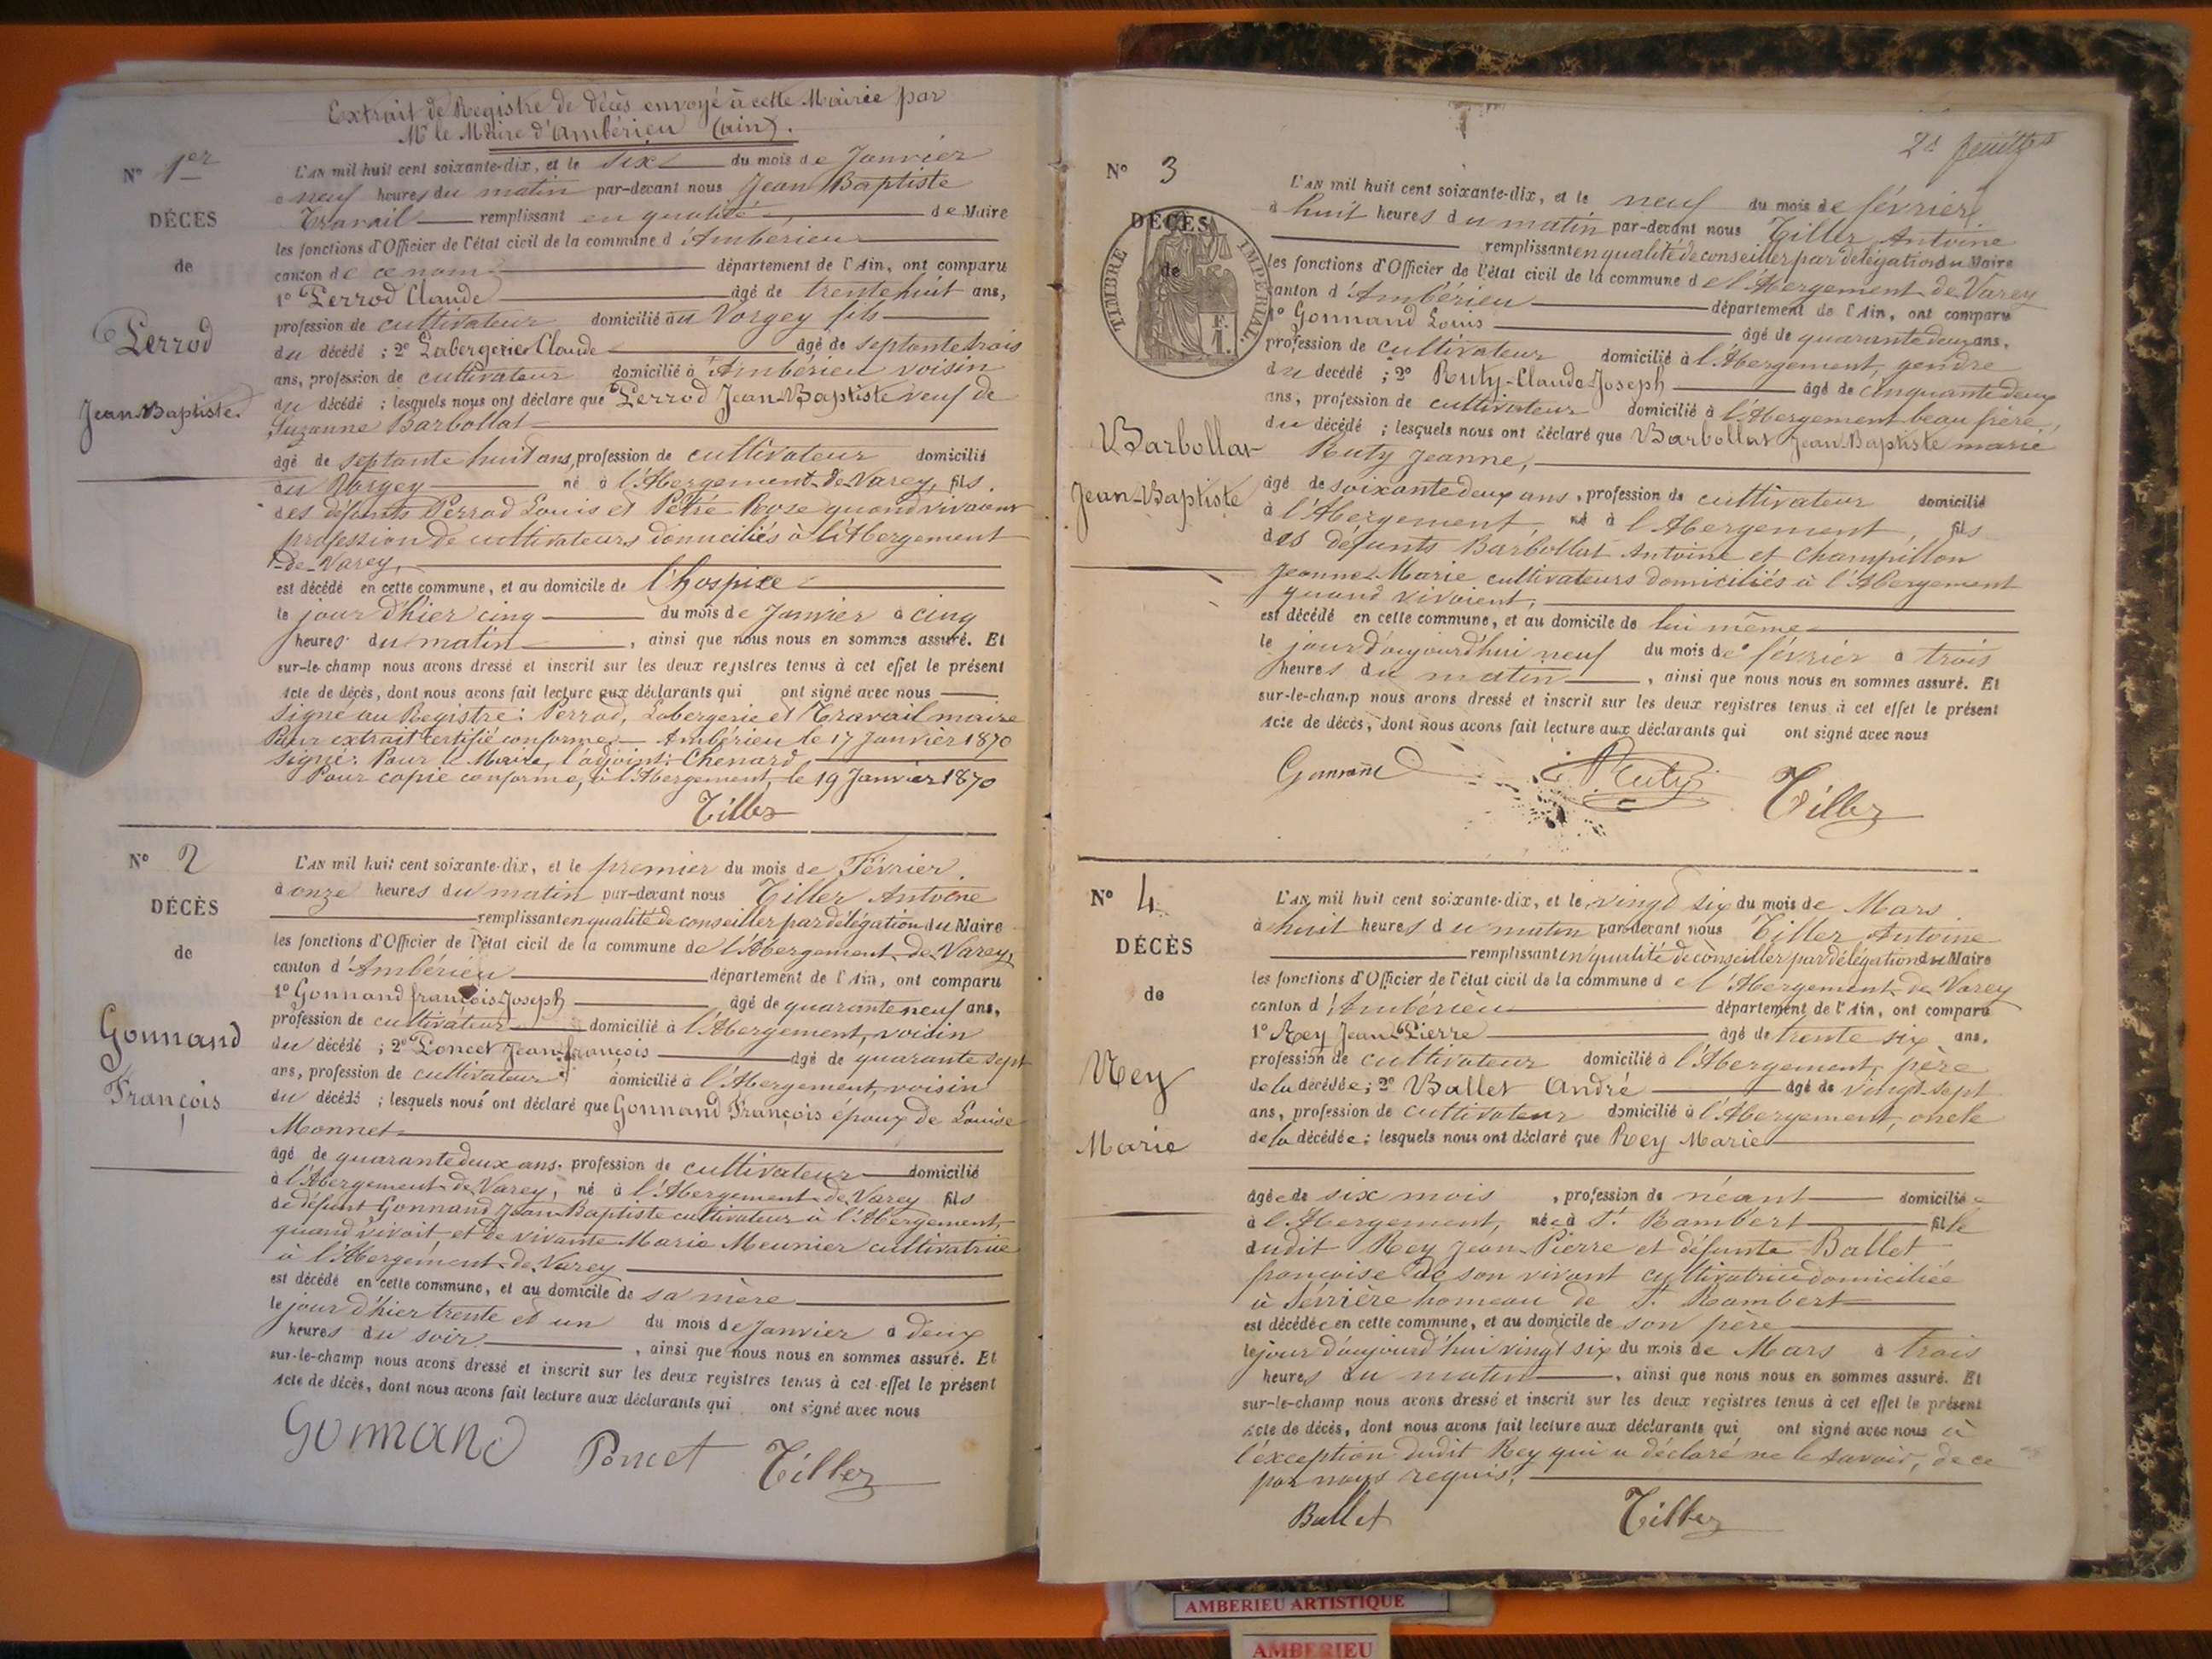 Extrait de Registre de décès envoyé à cette Mairie par
Mr le Maire d'Ambérieu (ain).
N° 1er
DÉCÈS
de
Perrod
Jean-Baptiste
L'AN mil huit cent soixante-dix, et le six du mois de Janvier
à neuf heures du matin par-devant nous Jean Baptiste
Travail remplissant en qualité de Maire
les fonctions d'Officier de l'état civil de la commune d'Ambérieu
canton de ce nom département de l'Ain, ont comparu
1° Perrod Claude âgé de trente huit ans,
profession de cultivateur domicilié au Vorgey fils
du décédé ; 2° Labergerie Claude âgé de septante trois
ans, profession de cultivateur domicilié à Ambérieu voisin
du décédé ; lesquels nous ont déclaré que Perrod Jean-Baptiste veuf de
Suzanne Barbollat
âgé de septante huit ans, profession de cultivateur domicilié
au Vorgey né à l'Abergement-de-Varey, fils
des défunts Perrod Louis et Pétré Rose quand vivaient
profession de cultivateurs domiciliés à l'Abergement
de-Varey,
est décédé en cette commune, et au domicile de l'hospice
le jour d'hier cinq du mois de Janvier à cinq
heures du matin, ainsi que nous nous en sommes assuré. Et
sur-le-champ nous avons dressé et inscrit sur les deux registres tenus à cet effet le présent
acte de décès, dont nous avons fait lecture aux déclarants qui ont signé avec nous
Signé au Registre : Perrod, Labergerie et Travail maire
Pour extrait certifié conforme - Ambérieu le 17 Janvier 1870
Signé : Pour le Maire, l'adjoint : Chenard
Pour copie conforme, à l'Abergement, le 19 Janvier 1870
Tiller
N° 2
DÉCÈS
de
Gonnand
François
L'AN mil huit cent soixante-dix, et le premier du mois de Février
à onze heures du matin par-devant nous Tiller Antoine
remplissant en qualité de conseiller par délégation du Maire
les fonctions d'Officier de l'état civil de la commune de l'Abergement-de-Varey,
canton d'Ambérieu département de l'Ain, ont comparu
1° Gonnand françois-Joseph âgé de quarante neuf ans,
profession de cultivateur domicilié à l'Abergement, voisin
du décédé ; 2° Poncet Jean-françois âgé de quarante sept
ans, profession de cultivateur domicilié à l'Abergement, voisin
du décédé ; lesquels nous ont déclaré que Gonnand François époux de Louise
Monnet
âgé de quarante deux ans, profession de cultivateur domicilié
à l'Abergement-de-Varey, né à l'Abergement-de-Varey fils
de défunt Gonnand Jean-Baptiste cultivateur à l'Abergement,
quand vivait et de vivante Marie Meunier cultivatrice
à l'Abergement-de-Varey
est décédé en cette commune, et au domicile de sa mère
le jour d'hier trente et un du mois de Janvier à deux
heures du soir, ainsi que nous nous en sommes assuré. Et
sur-le-champ nous avons dressé et inscrit sur les deux registres tenus à cet effet le présent
acte de décès, dont nous avons fait lecture aux déclarants qui ont signé avec nous
Gonnand Poncet Tiller
2e feuillet
N° 3
DÉCÈS
de
TIMBRE IMPÉRIAL
F.
1.
Barbollat
Jean-Baptiste
L'AN mil huit cent soixante-dix, et le neuf du mois de février
à huit heures du matin par-devant nous Tiller Antoine
remplissant en qualité de conseiller par délégation du Maire
les fonctions d'Officier de l'état civil de la commune de l'Abergement-de-Varey
canton d'Ambérieu département de l'Ain, ont comparu
1° Gonnand Louis âgé de quarante deux ans,
profession de cultivateur domicilié à l'Abergement, gendre
du décédé ; 2° Ruty-Claude-Joseph âgé de cinquante deux
ans, profession de cultivateur domicilié à l'Abergement beau frère,
du décédé ; lesquels nous ont déclaré que Barbollat Jean Baptiste marié
Ruty Jeanne,
âgé de soixante deux ans, profession de cultivateur domicilié
à l'Abergement né à l'Abergement, fils
des défunts Barbollat Antoine et Champillon
Jeanne-Marie cultivateurs domiciliés à l'Abergement
quand vivoient,
est décédé en cette commune, et au domicile de lui même
le jour d'aujourd'hui neuf du mois de février à trois
heures du matin, ainsi que nous nous en sommes assuré. Et
sur-le-champ nous avons dressé et inscrit sur les deux registres tenus à cet effet le présent
acte de décès, dont nous avons fait lecture aux déclarants qui ont signé avec nous
Gonnand Ruty Tiller
N° 4
DÉCÈS
de
Rey
Marie
L'AN mil huit cent soixante-dix, et le vingt six du mois de Mars
à huit heures du matin par-devant nous Tiller Antoine
remplissant en qualité de conseiller par délégation du Maire
les fonctions d'Officier de l'état civil de la commune de l'Abergement-de-Varey
canton d'Ambérieu département de l'Ain, ont comparu
1° Rey Jean-Pierre âgé de trente six ans,
profession de cultivateur domicilié à l'Abergement, père
de la décédée ; 2° Ballet André âgé de vingt-sept
ans, profession de cultivateur domicilié à l'Abergement, oncle
de la décédée ; lesquels nous ont déclaré que Rey Marie
âgée de six mois, profession de néant domiciliée
à l'Abergement, née à St. Rambert fille
dudit Rey Jean-Pierre et défunte Ballet
françoise de son vivant cultivatrice domiciliée
à Serrière hameau de St. Rambert
est décédée en cette commune, et au domicile de son père
le jour d'aujourd'hui vingt six du mois de Mars à trois
heures du matin, ainsi que nous nous en sommes assuré. Et
sur-le-champ nous avons dressé et inscrit sur les deux registres tenus à cet effet le présent
acte de décès, dont nous avons fait lecture aux déclarants qui ont signé avec nous à
l'exception dudit Rey qui a déclaré ne le savoir, de ce
par nous requis,
Ballet Tiller
AMBERIEU ARTISTIQUE
AMBERIEU